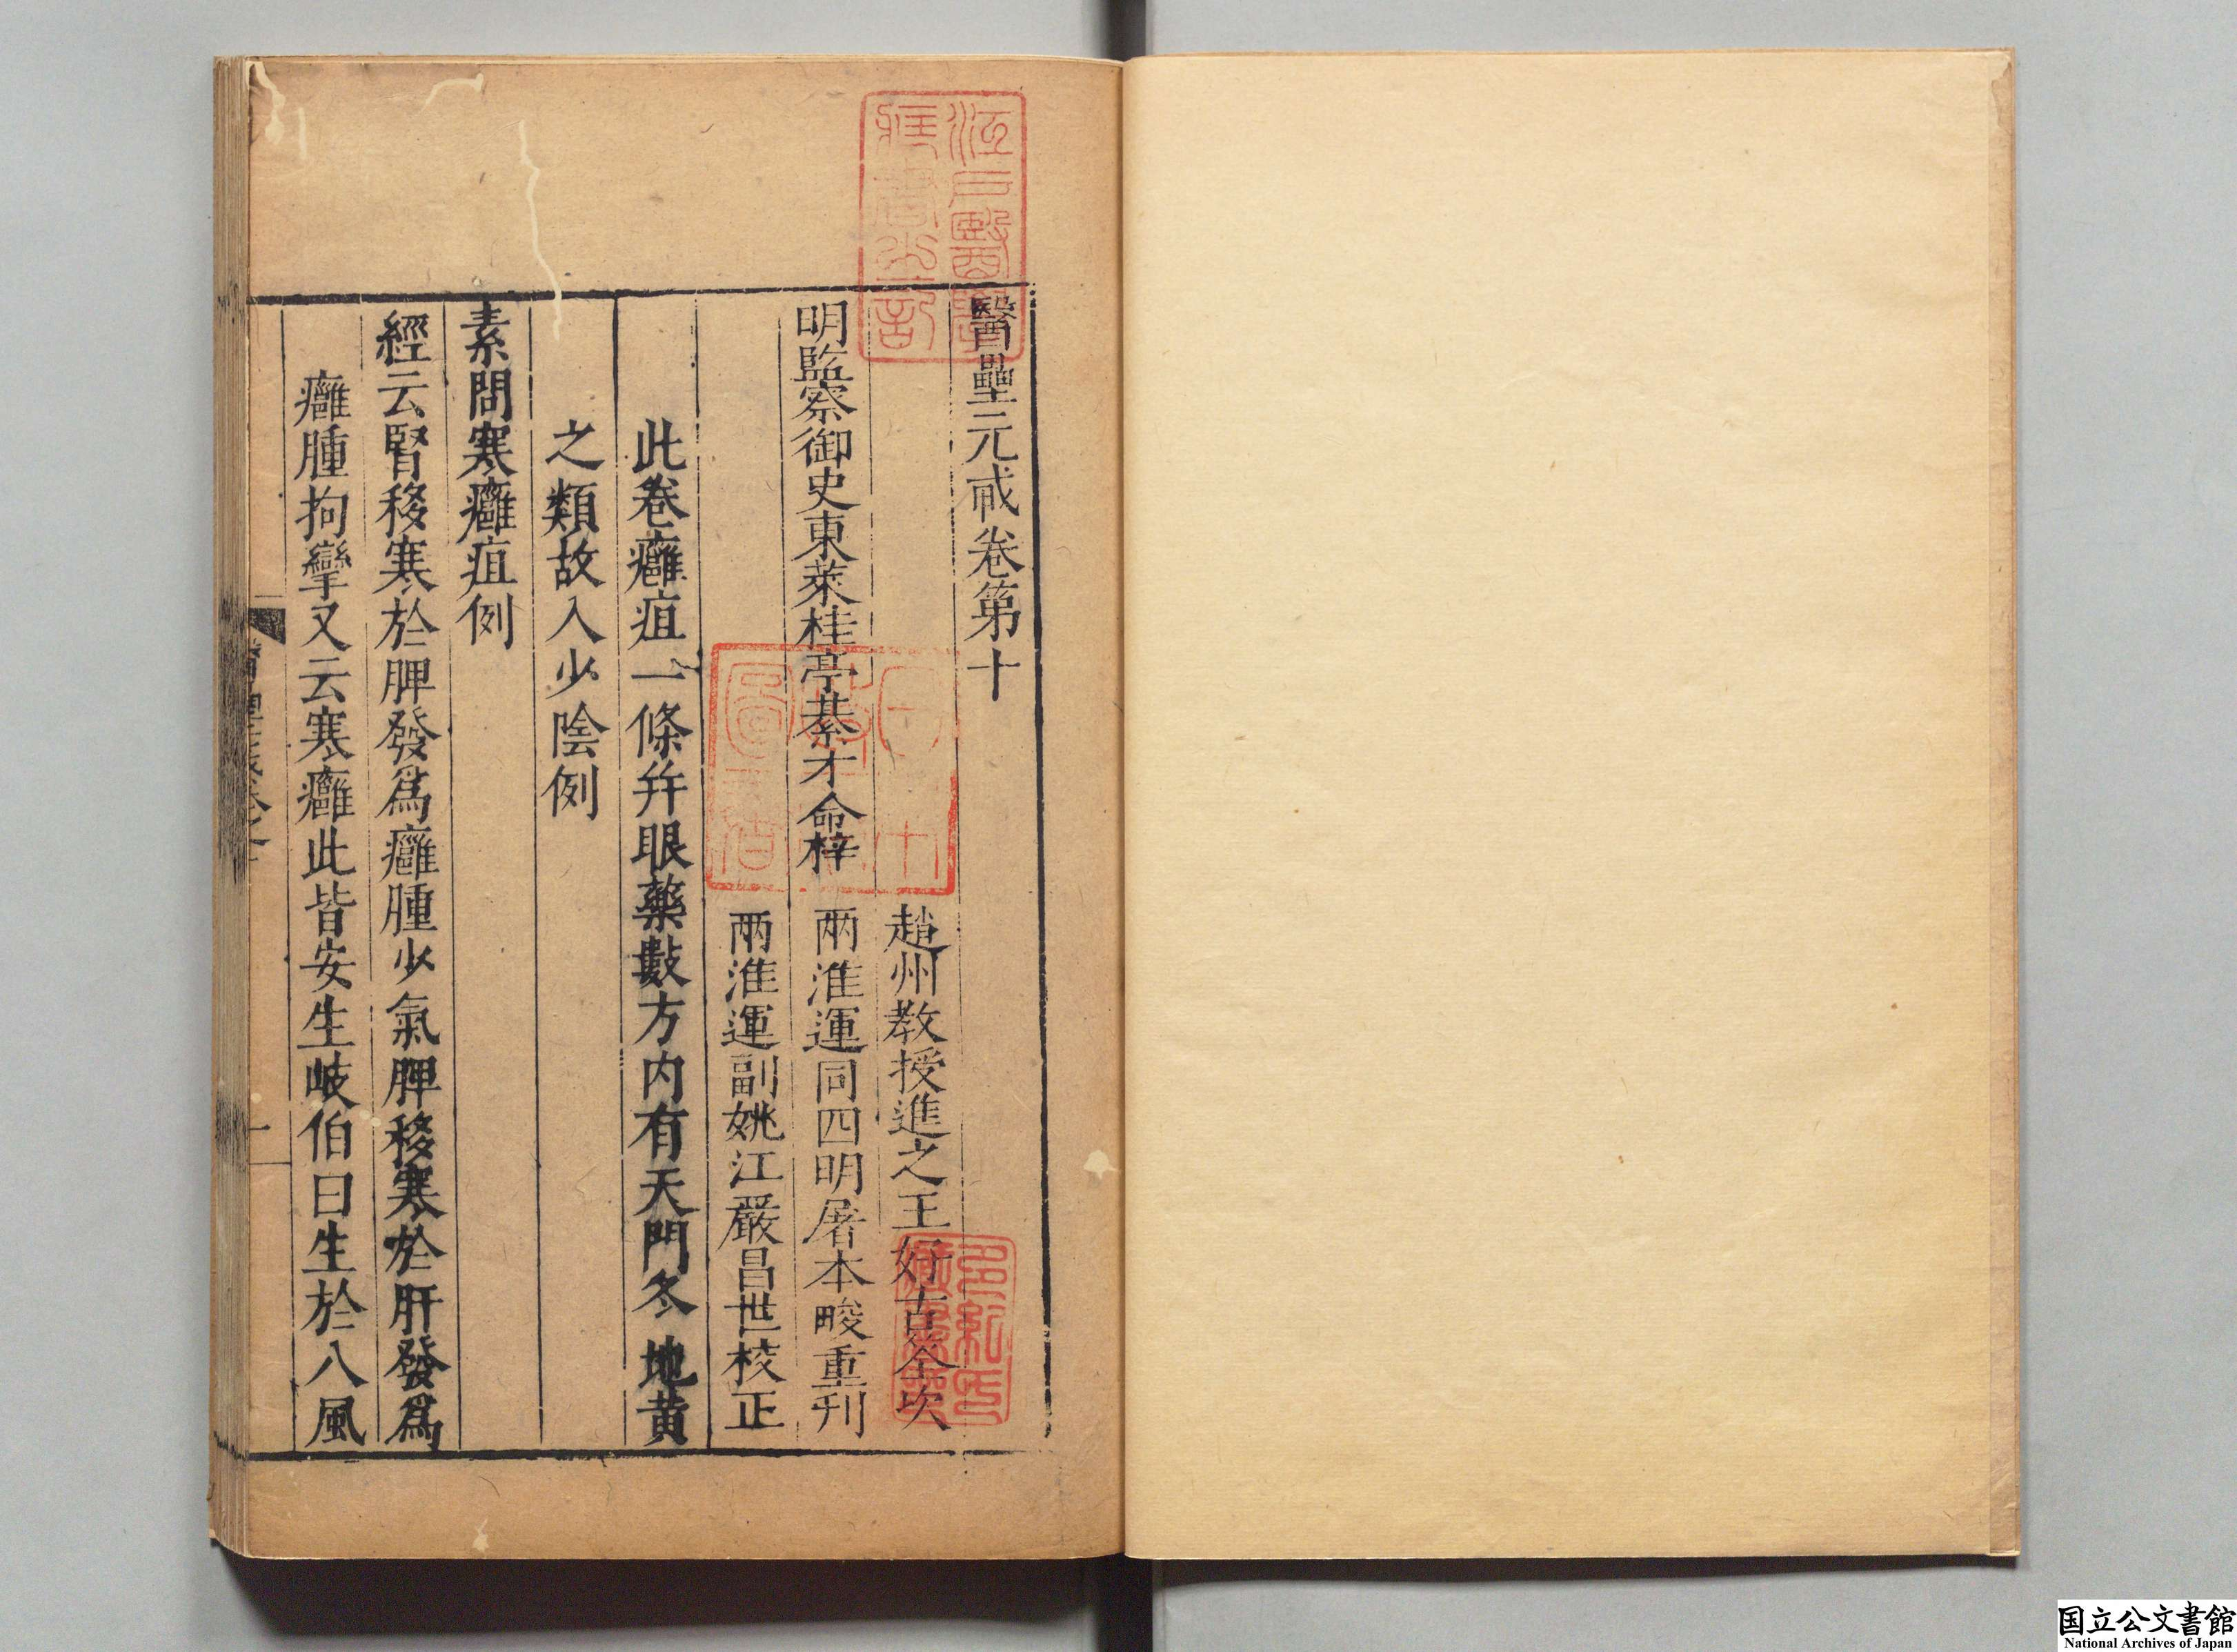 醫壘元戎卷第十
趙州教授進之王好古全次
明監察御史東萊桂亭綦才命梓
兩淮運同四明屠本畯重刊
兩淮運副姚江嚴昌世校正
此卷癰疽一條幷眼藥數方内有天門冬地黄
之類故入少陰例
素問寒癰疽例
經云腎移寒於脾發爲癰腫少氣脾移寒於肝發爲
癰腫拘攣又云寒癰此皆安生岐伯曰生於八風
江戶醫學
藏書之記
日本
政府
圖書
多紀氏
藏書印
一
国立公文書館
National Archives of Japan